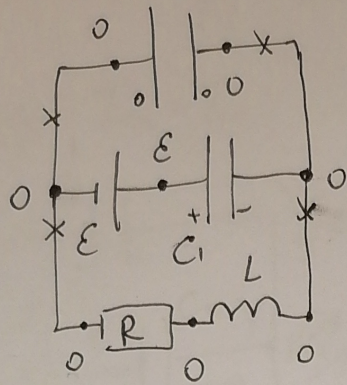 0
0 0 0
0 ε 0
ε + -
C₁ L
R
0 0 0